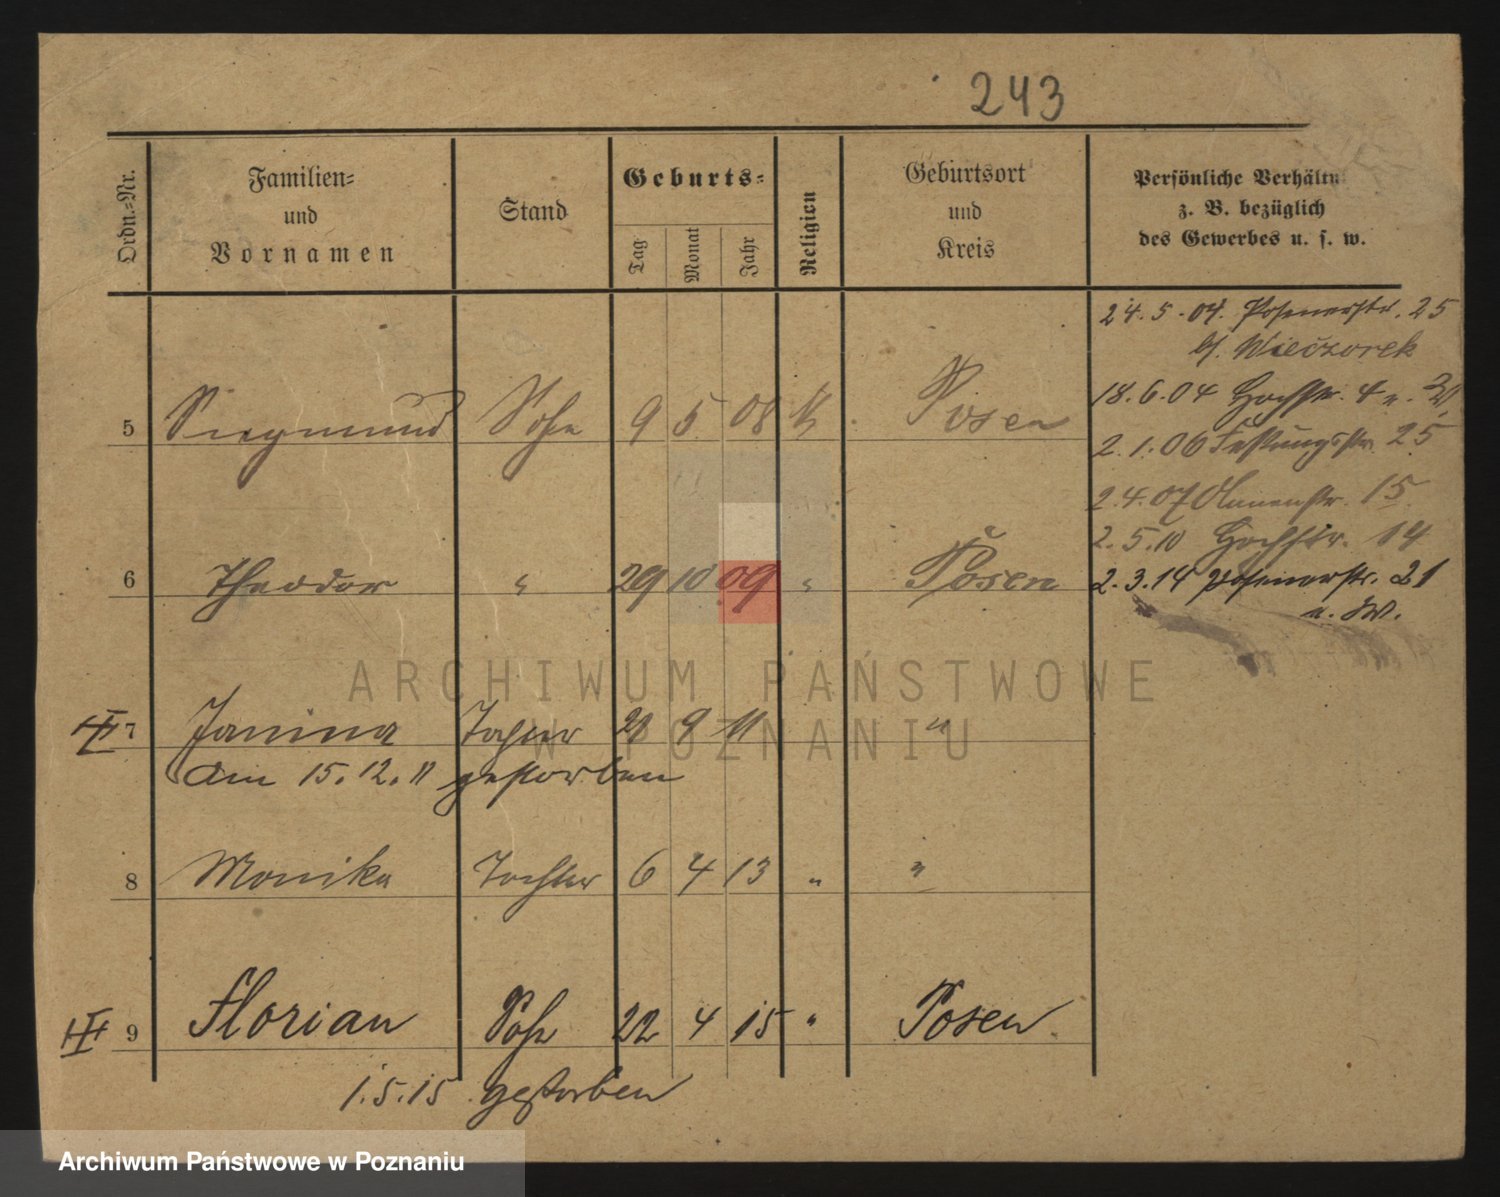 243
Ordn.=Nr.
Familien=
und
Vornamen
Stand
Geburts=
Tag
Monat
Jahr
Religion
Geburtsort
und
Kreis
Persönliche Verhältn
z. B. bezüglich
des Gewerbes u. s. w.
24.5.04. Posenerstr. 25
bf. Wieczorek
18.6.04 Hochstr. 4
2.1.06 Festungsstr. 25
2.4.07 15
2.5.10 Hochstr. 14
2.3.14 Posenerstr. 21
u. W.
5 Siegmund Sohn 9 5 08 k Posen
6 Theodor " 29 10 09 " Posen
7 Janina Tochter 9 11 "
Am 15.12.11 gestorben
8 Monika Tochter 6 4 13 " "
9 Florian Sohn 22 4 15 " Posen
1.5.15 gestorben
ARCHIWUM PAŃSTWOWE
W POZNANIU
Archiwum Państwowe w Poznaniu